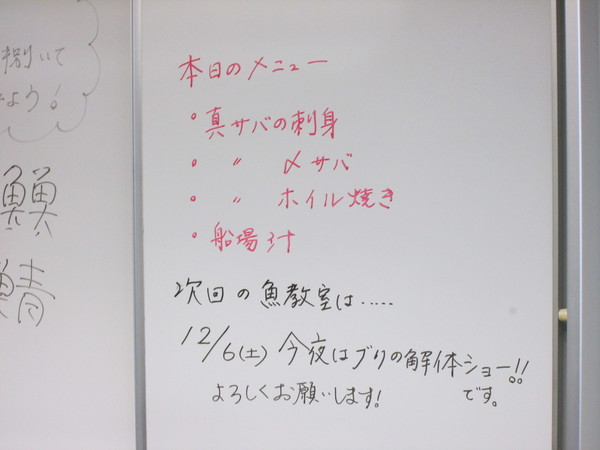 捌いて
みよう!
鯖
本日のメニュー
・真サバの刺身
・ 〃 〆サバ
・ 〃 ホイル焼き
・船場汁
次回の魚教室は……
12/6(土) 今夜はブリの解体ショー!!
よろしくお願いします! です。